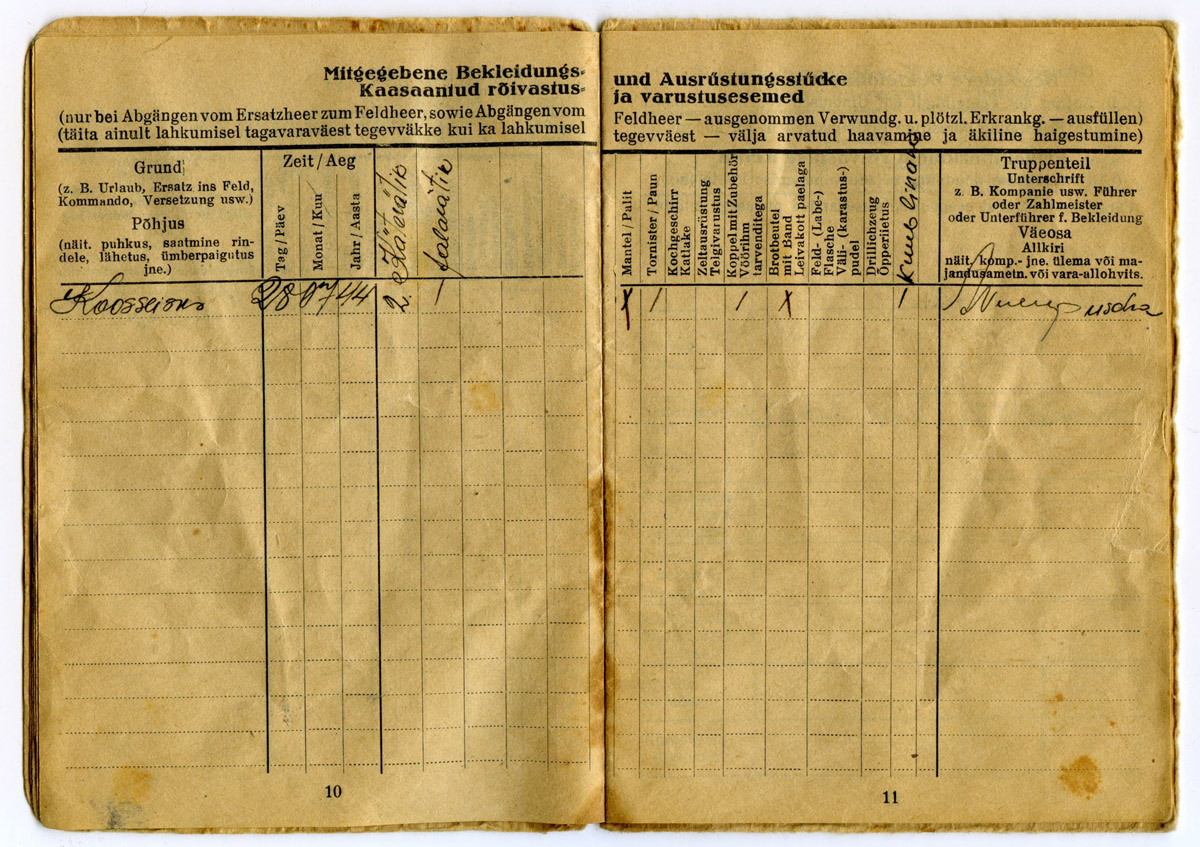 Mitgegebene Bekleidungs-
Kaasaantud rõivastus-
(nur bei Abgängen vom Ersatzheer zum Feldheer, sowie Abgängen vom
(täita ainult lahkumisel tagavaraväest tegevväkke kui ka lahkumisel
Grund
(z. B. Urlaub, Ersatz ins Feld,
Kommando, Versetzung usw.)
Põhjus
(näit. puhkus, saatmine rin-
dele, lähetus, ümberpaigutus
jne.)
Zeit / Aeg
Tag / Päev
Monat / Kuu
Jahr / Aasta
2. Käterätik
Jalarätik
28 07 44
10
und Ausrüstungsstücke
ja varustusesemed
Feldheer — ausgenommen Verwundg. u. plötzl. Erkrankg. — ausfüllen)
tegevväest — välja arvatud haavamine ja äkiline haigestumine)
Mantel / Palit
Tornister / Paun
Kochgeschirr
Katlake
Zeltausrüstung
Telgivarustus
Koppel mit Zubehör
Vöörihm
tarvenditega
Brotbeutel
mit Band
Leivakott paelaga
Feld- (Labe-)
Flasche
Väli- (karastus-)
pudel
Drillichzeug
Õpperiietus
Truppenteil
Unterschrift
z. B. Kompanie usw. Führer
oder Zahlmeister
oder Unterführer f. Bekleidung
Väeosa
Allkiri
näit. komp.- jne. ülema või ma-
jandusametn. või vara-allohvits.
X / / X /
11